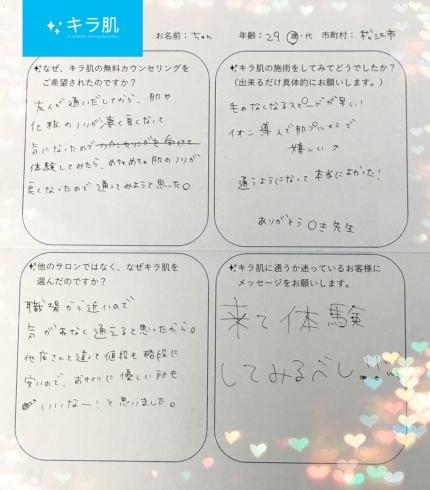 キラ肌
お名前：ちゃん 年齢：29 歳・代 市町村：松江市
なぜ、キラ肌の無料カウンセリングを
ご希望されたのですか？
友人が通いだしてから、肌や
化粧のノリが凄く良くなって
気になったのでカウンセリングを受けて
体験してみたら、めちゃめちゃ肌のノリが
良くなったので通ってみようと思った。
キラ肌の施術をしてみてどうでしたか？
（出来るだけ具体的にお願いします。）
毛のなくなるスピードが早い！
イオン導入で肌プルプルで
嬉しい
通うようになって本当によかった！
ありがとう〇き先生
他のサロンではなく、なぜキラ肌を
選んだのですか？
職場から近いので
気がねなく通えると思ったから。
他店さんと違って値段も格段に
安いので、おサイフに優しい所も
いいなー！と思いました。
キラ肌に通うか迷っているお客様に
メッセージをお願いします。
来て体験
してみるべし!!